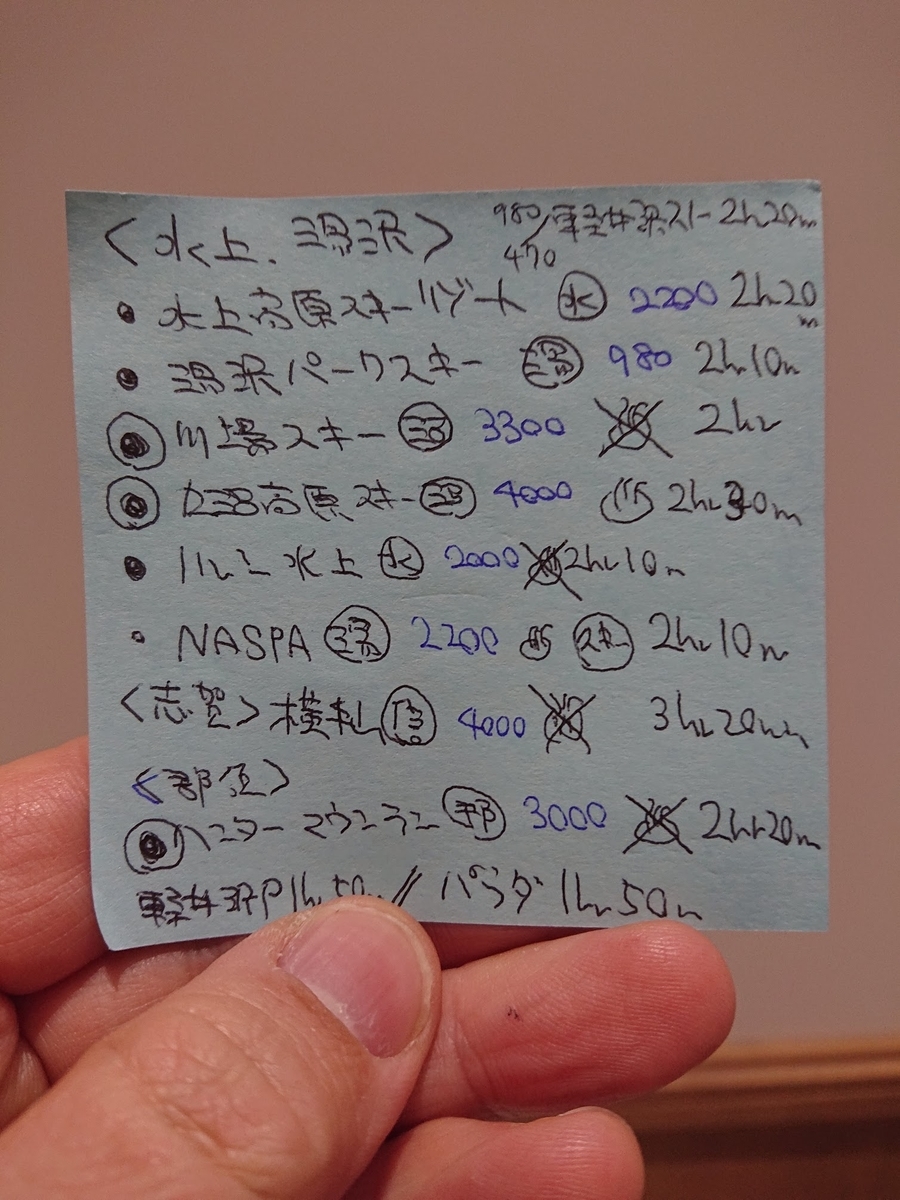 <水上、湯沢> 980/軽井沢スノー2h20m
470
• 水上高原スキーリゾート ㊌ 2200 2h20m
• 湯沢パークスキー 湯 980 2h10m
◉ 川場スキー 沼 3300 2hr
◉ 高原スキー 4000 2hr
• ノルン水上 水 2000 2hr10m
• NASPA 湯 2200 スキー 2hr10m
<志賀> 横手山 4000 3hr20m
<那須>
◉ ハンターマウンテン 那 3000 2hr20m
軽井沢P1h50m // パラダ 1hr50m